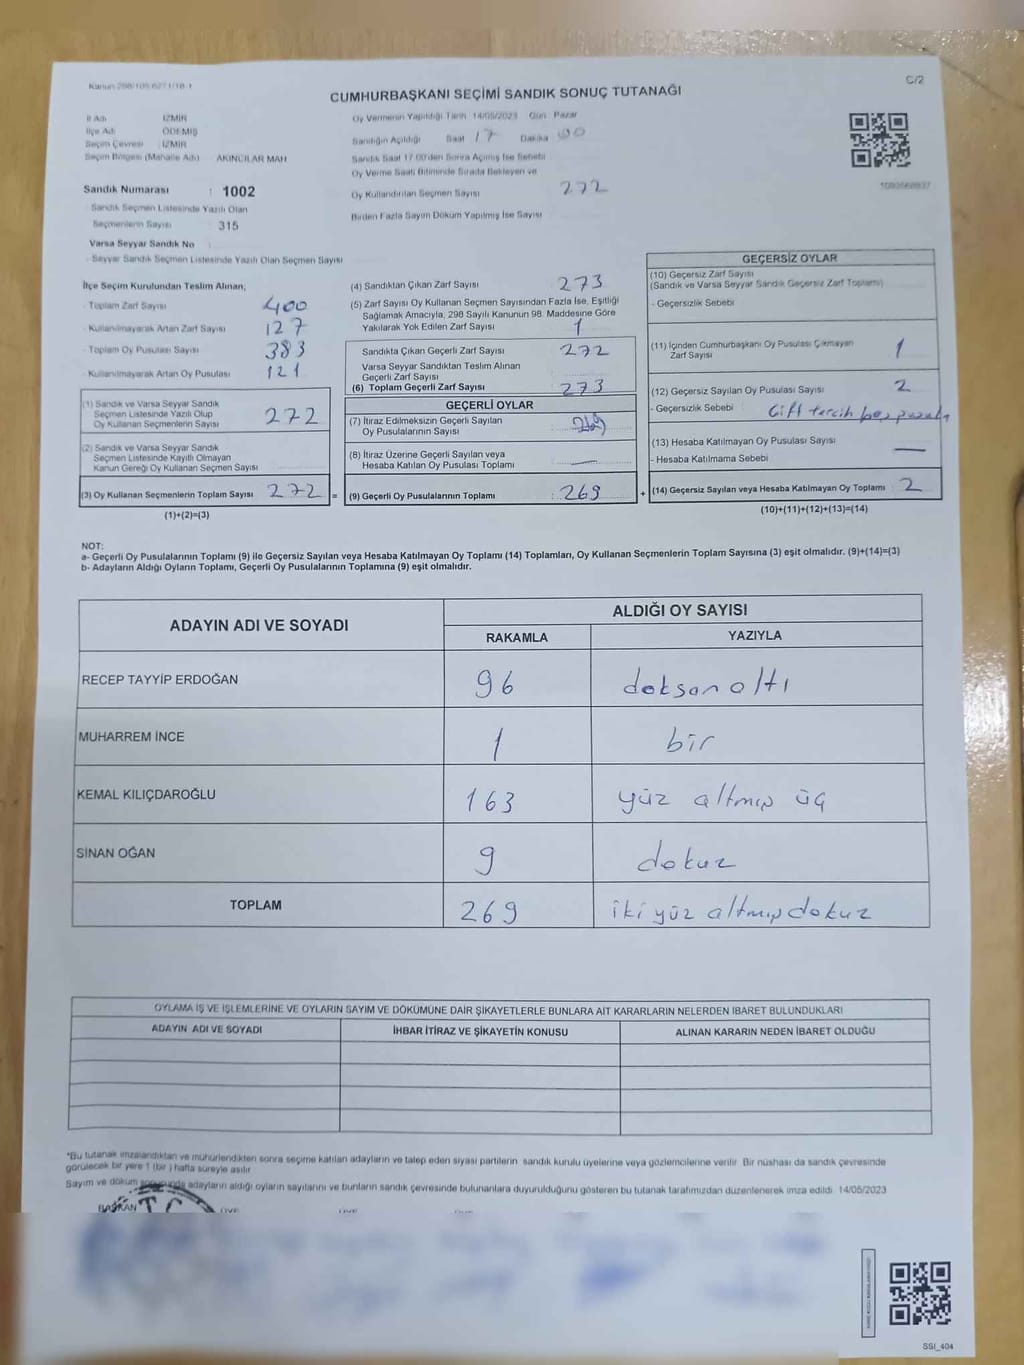 C/2
CUMHURBAŞKANI SEÇİMİ SANDIK SONUÇ TUTANAĞI
İl Adı İZMİR
İlçe Adı ÖDEMİŞ
Seçim Çevresi İZMİR
Seçim Bölgesi (Mahalle Adı) AKINCILAR MAH
Sandık Numarası : 1002
Sandık Seçmen Listesinde Yazılı Olan
Seçmenlerin Sayısı : 315
Varsa Seyyar Sandık No
- Seyyar Sandık Seçmen Listesinde Yazılı Olan Seçmen Sayısı
Oy Vermenin Yapıldığı Tarih 14/05/2023 Gün Pazar
Sandığın Açıldığı Saat 17 Dakika 00
Sandık Saat 17:00'den Sonra Açılmış İse Sebebi
Oy Verme Saati Bitiminde Sırada Bekleyen ve
Oy Kullandırılan Seçmen Sayısı 272
Birden Fazla Sayım Döküm Yapılmış İse Sayısı
İlçe Seçim Kurulundan Teslim Alınan;
- Toplam Zarf Sayısı 400
- Kullanılmayarak Artan Zarf Sayısı 127
- Toplam Oy Pusulası Sayısı 383
- Kullanılmayarak Artan Oy Pusulası 121
(1) Sandık ve Varsa Seyyar Sandık
Seçmen Listesinde Yazılı Olup
Oy Kullanan Seçmenlerin Sayısı 272
(2) Sandık ve Varsa Seyyar Sandık
Seçmen Listesinde Kayıtlı Olmayan
Kanun Gereği Oy Kullanan Seçmen Sayısı
(3) Oy Kullanan Seçmenlerin Toplam Sayısı 272 =
(1)+(2)=(3)
(4) Sandıktan Çıkan Zarf Sayısı 273
(5) Zarf Sayısı Oy Kullanan Seçmen Sayısından Fazla İse, Eşitliği
Sağlamak Amacıyla, 298 Sayılı Kanunun 98. Maddesine Göre
Yakılarak Yok Edilen Zarf Sayısı 1
Sandıkta Çıkan Geçerli Zarf Sayısı 272
Varsa Seyyar Sandıktan Teslim Alınan
Geçerli Zarf Sayısı
(6) Toplam Geçerli Zarf Sayısı 273
GEÇERLİ OYLAR
(7) İtiraz Edilmeksizin Geçerli Sayılan
Oy Pusulalarının Sayısı 269
(8) İtiraz Üzerine Geçerli Sayılan veya
Hesaba Katılan Oy Pusulası Toplamı —
(9) Geçerli Oy Pusulalarının Toplamı : 269 +
GEÇERSİZ OYLAR
(10) Geçersiz Zarf Sayısı
(Sandık ve Varsa Seyyar Sandık Geçersiz Zarf Toplamı)
- Geçersizlik Sebebi
(11) İçinden Cumhurbaşkanı Oy Pusulası Çıkmayan
Zarf Sayısı 1
(12) Geçersiz Sayılan Oy Pusulası Sayısı 2
- Geçersizlik Sebebi Çift tercih boş pusula
(13) Hesaba Katılmayan Oy Pusulası Sayısı —
- Hesaba Katılmama Sebebi
(14) Geçersiz Sayılan veya Hesaba Katılmayan Oy Toplamı 2
(10)+(11)+(12)+(13)=(14)
NOT:
a- Geçerli Oy Pusulalarının Toplamı (9) ile Geçersiz Sayılan veya Hesaba Katılmayan Oy Toplamı (14) Toplamları, Oy Kullanan Seçmenlerin Toplam Sayısına (3) eşit olmalıdır. (9)+(14)=(3)
b- Adayların Aldığı Oyların Toplamı, Geçerli Oy Pusulalarının Toplamına (9) eşit olmalıdır.
ADAYIN ADI VE SOYADI ALDIĞI OY SAYISI
RAKAMLA YAZIYLA
RECEP TAYYİP ERDOĞAN 96 doksan altı
MUHARREM İNCE 1 bir
KEMAL KILIÇDAROĞLU 163 yüz altmış üç
SİNAN OĞAN 9 dokuz
TOPLAM 269 iki yüz altmış dokuz
OYLAMA İŞ VE İŞLEMLERİNE VE OYLARIN SAYIM VE DÖKÜMÜNE DAİR ŞİKAYETLERLE BUNLARA AİT KARARLARIN NELERDEN İBARET BULUNDUKLARI
ADAYIN ADI VE SOYADI İHBAR İTİRAZ VE ŞİKAYETİN KONUSU ALINAN KARARIN NEDEN İBARET OLDUĞU
*Bu tutanak imzalandıktan ve mühürlendikten sonra seçime katılan adayların ve talep eden siyasi partilerin sandık kurulu üyelerine veya gözlemcilerine verilir. Bir nüshası da sandık çevresinde
görülecek bir yere 1 (bir) hafta süreyle asılır.
Sayım ve döküm sonucunda adayların aldığı oyların sayılarını ve bunların sandık çevresinde bulunanlara duyurulduğunu gösteren bu tutanak tarafımızdan düzenlenerek imza edildi. 14/05/2023
BAŞKAN T.C.
SSI_404